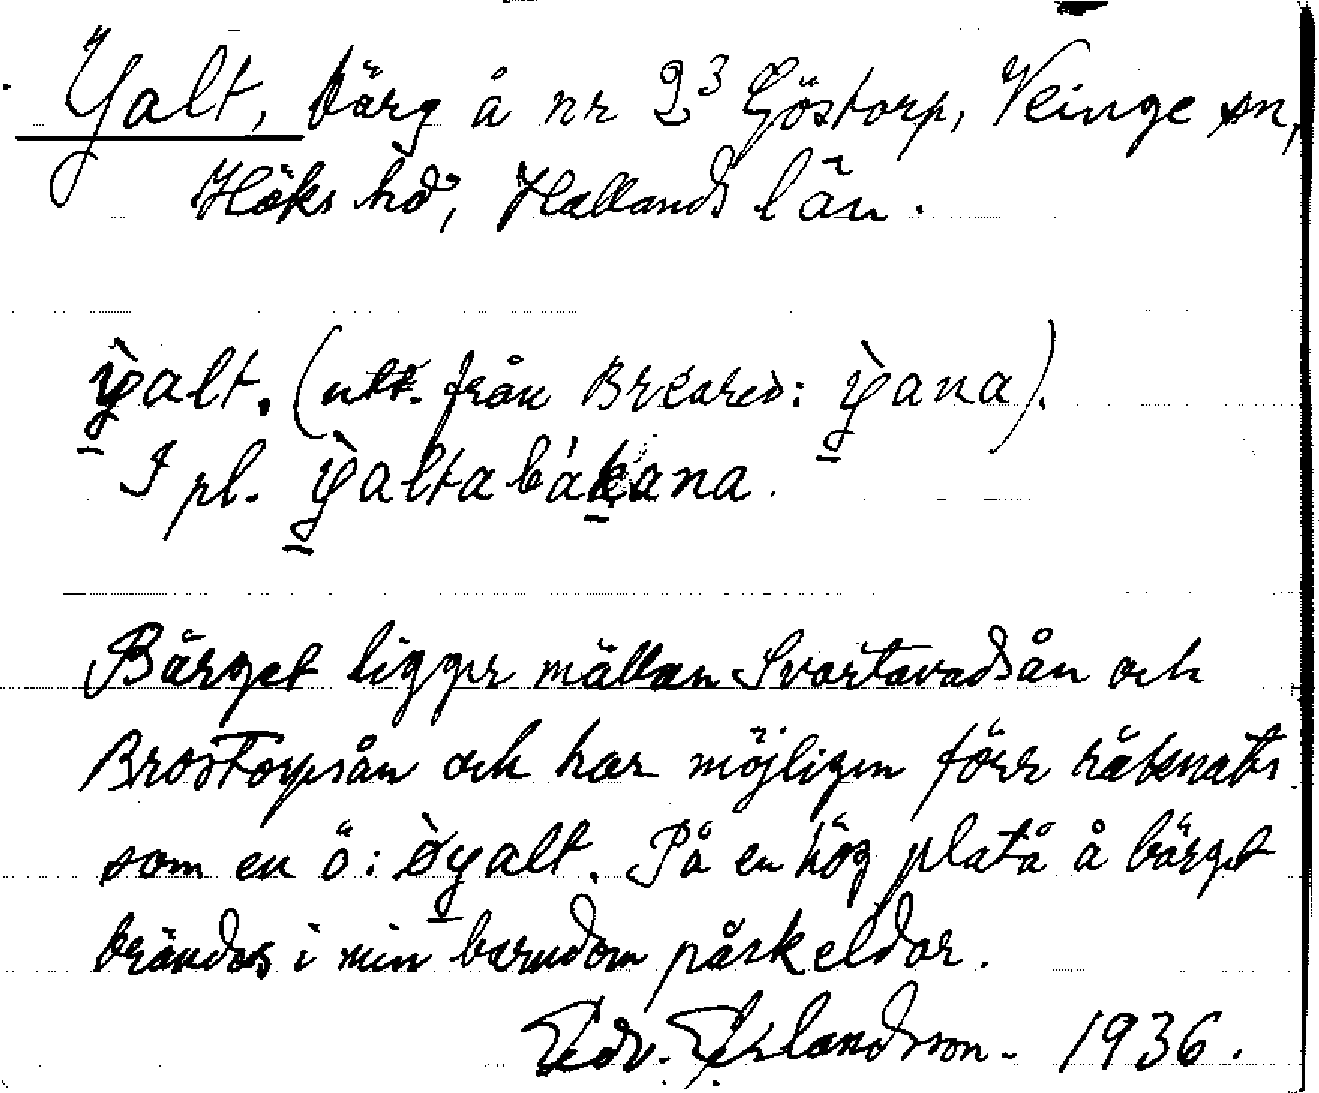 Yalt, bärg å nr 2³ Göstorp, Veinge sn,
Höks hd, Hallands län.
ỳ̠alt. (utt. från Breared: ỳ̠ana).
I pl. ỳ̠altabák̠ana.
Bärget ligger mällan Svartavadsån och
Brostorpsån och har möjligen förr räknats
som en ö: òy̠alt. På en hög platå å bärget
brändes i min barndom påskeldar.
Edv. Erlandsson. 1936.